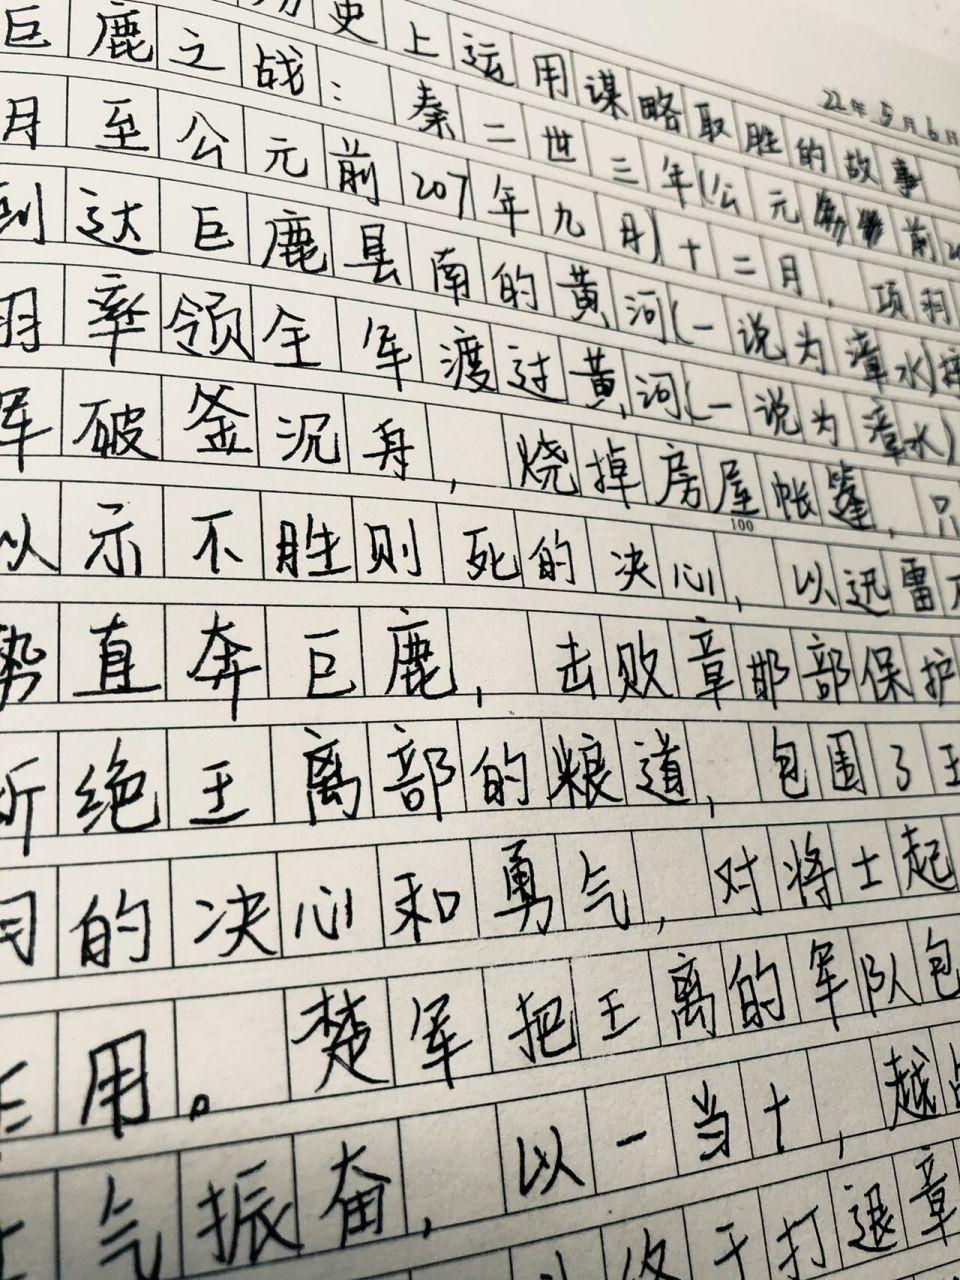 22年5月6日
历史上运用谋略取胜的故事
巨鹿之战：秦二世三年(公元前20
月至公元前207年九月)十二月，项羽
到达巨鹿县南的黄河(一说为漳水)
羽率领全军渡过黄河(一说为漳水)
军破釜沉舟，烧掉房屋帐篷，只
100
以示不胜则死的决心，以迅雷不
势直奔巨鹿，击败章邯部保护
断绝王离部的粮道，包围了王
的决心和勇气，对将士起
作用。楚军把王离的军队包
士气振奋，以一当十，越战
终于打退章